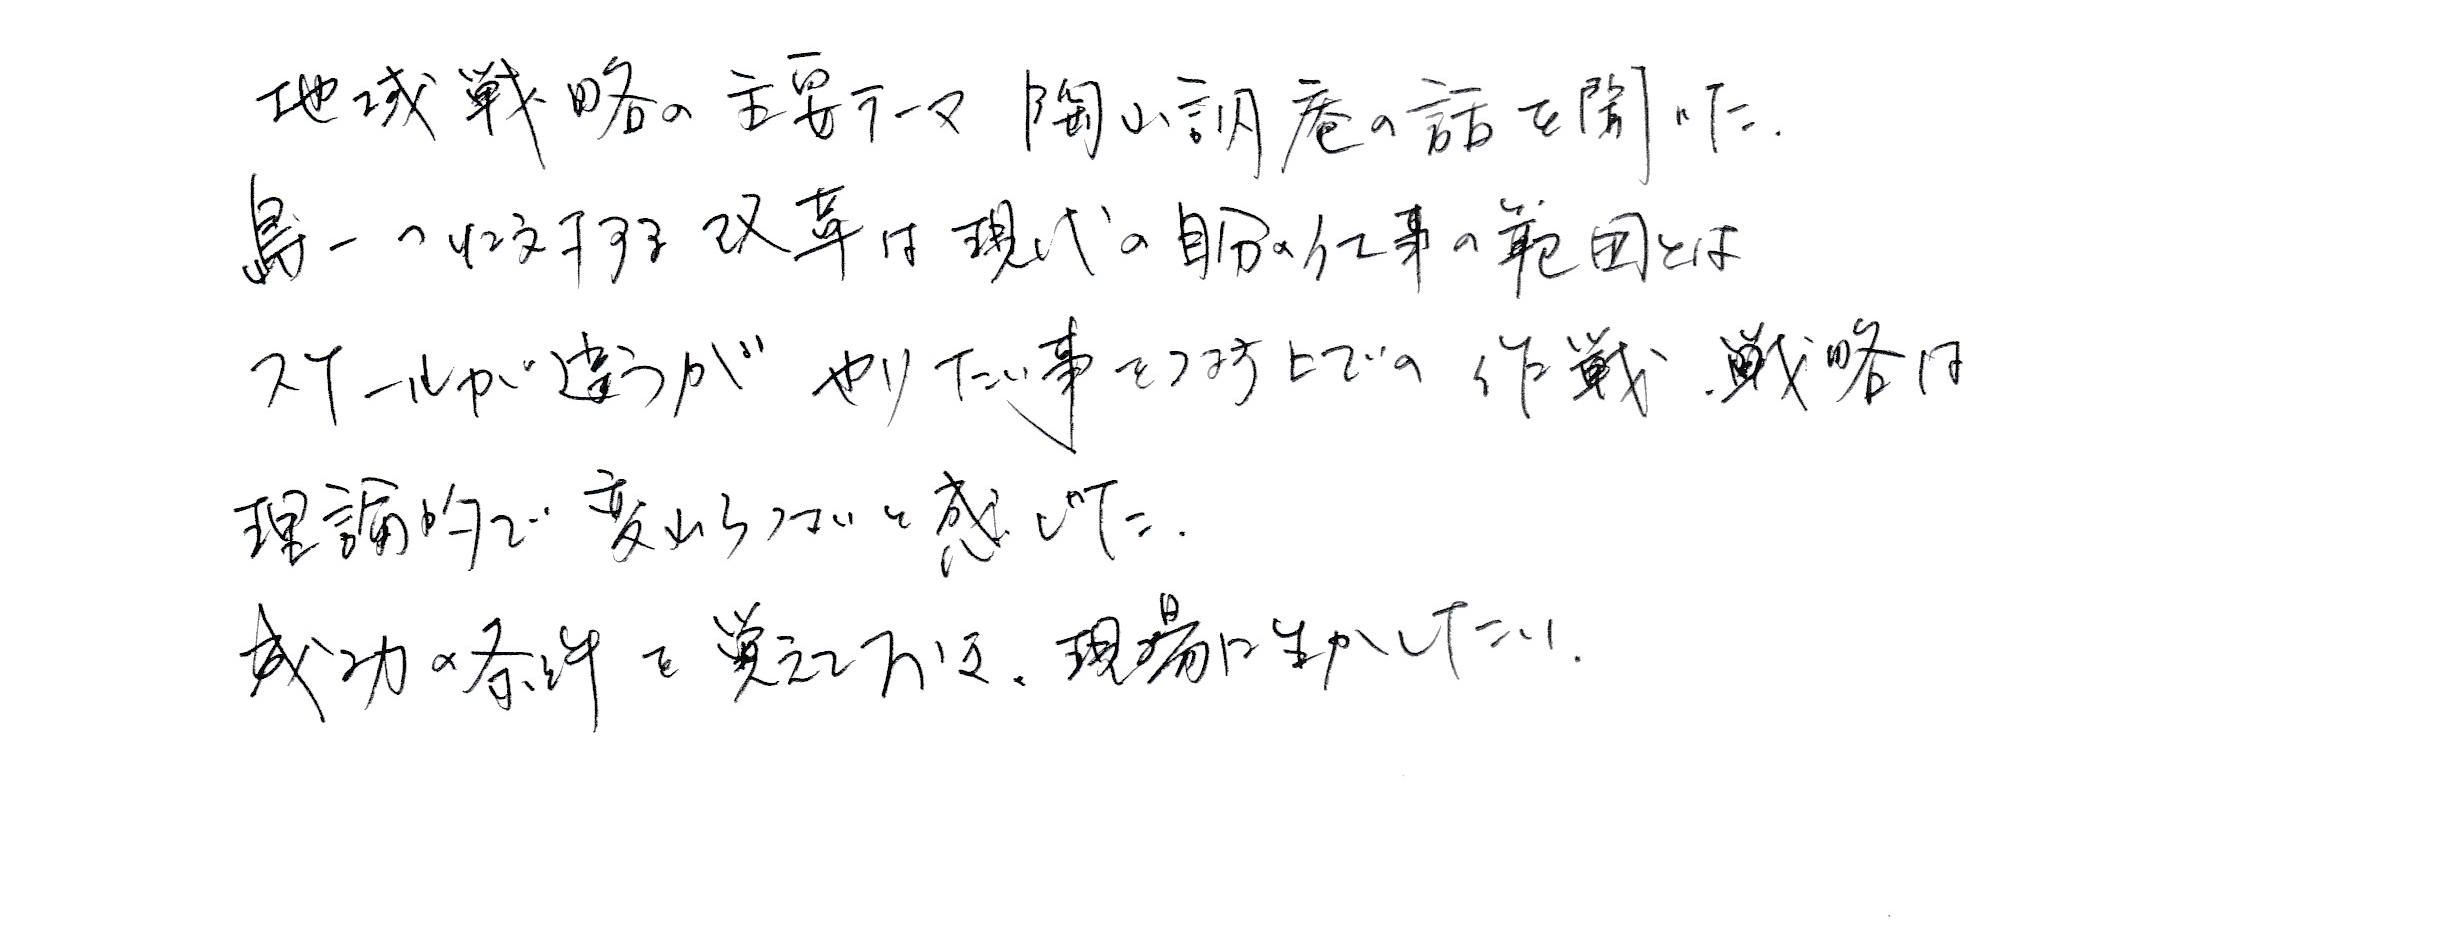 地域戦略の主要テーマ 陶山訥庵の話を聞いた.
島一つに対する改革は現代の自分の仕事の範囲とは
スケールが違うが やりたい事をつなす上での 作戦、戦略は
理論的で変わらないと感じた.
成功の条件を覚えておき、現場に生かしたい.